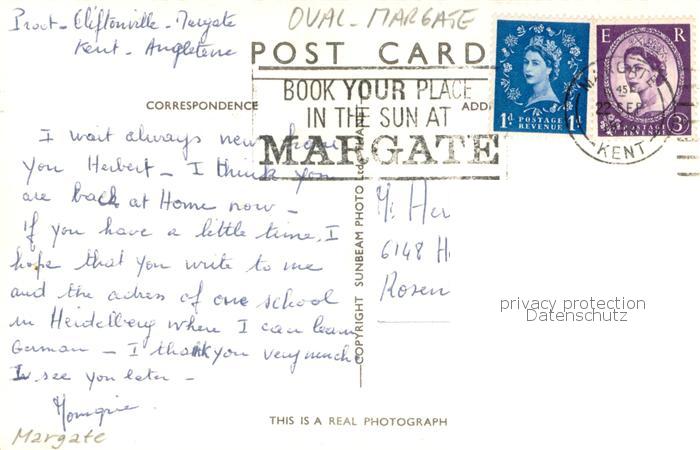 Cliftonville - Margate
Kent - Angleterre
OVAL - MARGATE
POST CARD
BOOK YOUR PLACE
IN THE SUN AT
MARGATE
CORRESPONDENCE
ADD
1d POSTAGE REVENUE 1d
E R
POSTAGE REVENUE 3d
MARGATE
22 SEP
KENT
I wait always new from
you Herbert - I think you
are back at Home now -
If you have a little time, I
hope that you write to me
and the adress of one school
in Heidelberg where I can learn
German - I thank you very much
I see you later -
Monique.
Margate
COPYRIGHT SUNBEAM PHOTO Ltd.
6148 H
Rosen
privacy protection
Datenschutz
THIS IS A REAL PHOTOGRAPH